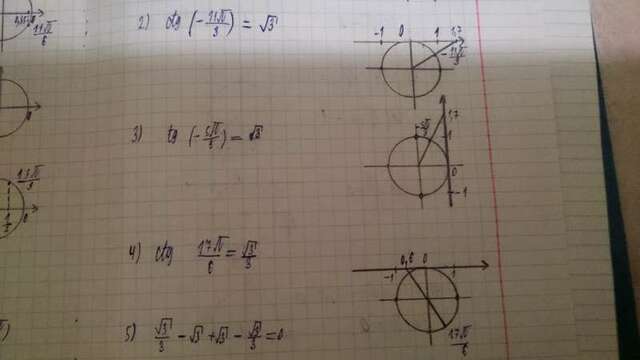 11π/6
2) ctg (-11π/3) = √3
-1 0 1 1,7
-11π/3
3) tg (-5π/3) = √3
1,7
1
0
-1
13π/3
1/2
4) ctg 17π/6 = √3/3
-1 0,6 0 1
17π/6
5) √3/3 - √3 + √3 - √3/3 = 0